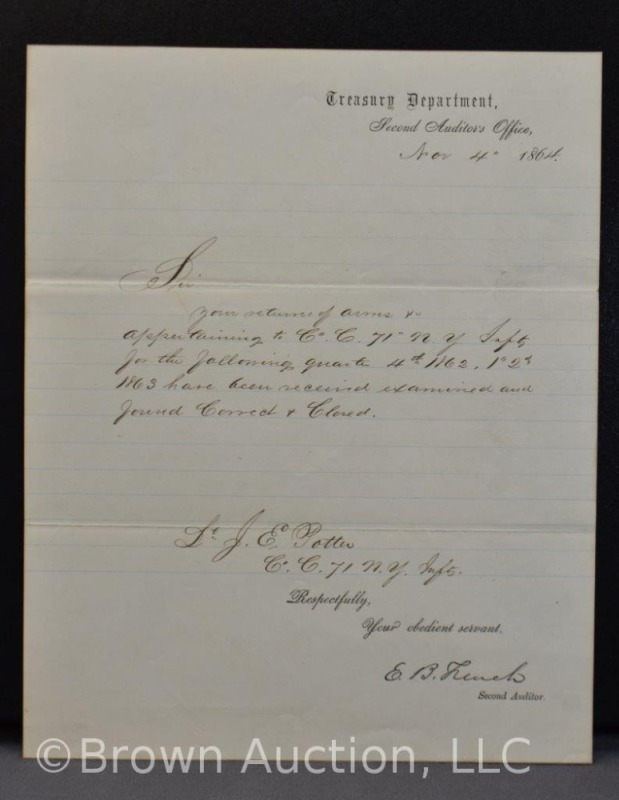 Treasury Department,
Second Auditor's Office,
Nov 4" 1864.
Sir
Your returns of arms &
appertaining to Co. C. 71" N Y Infty
for the following quarter 4th 1862, 1st 2d
1863 have been received examined and
found Correct & Closed.
Lt. J. E. Potter
Co. C. 71 N. Y. Infty.
Respectfully,
Your obedient servant,
E. B. French
Second Auditor.
©Brown Auction, LLC